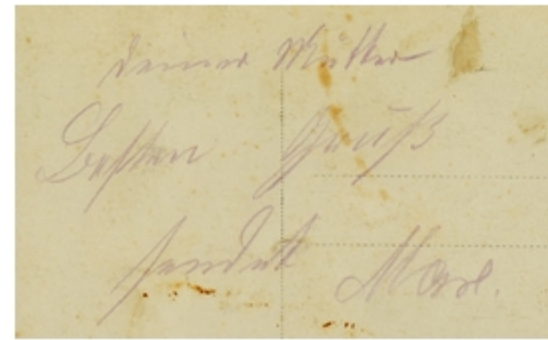 deiner Mutter
Besten Gruß
sendet